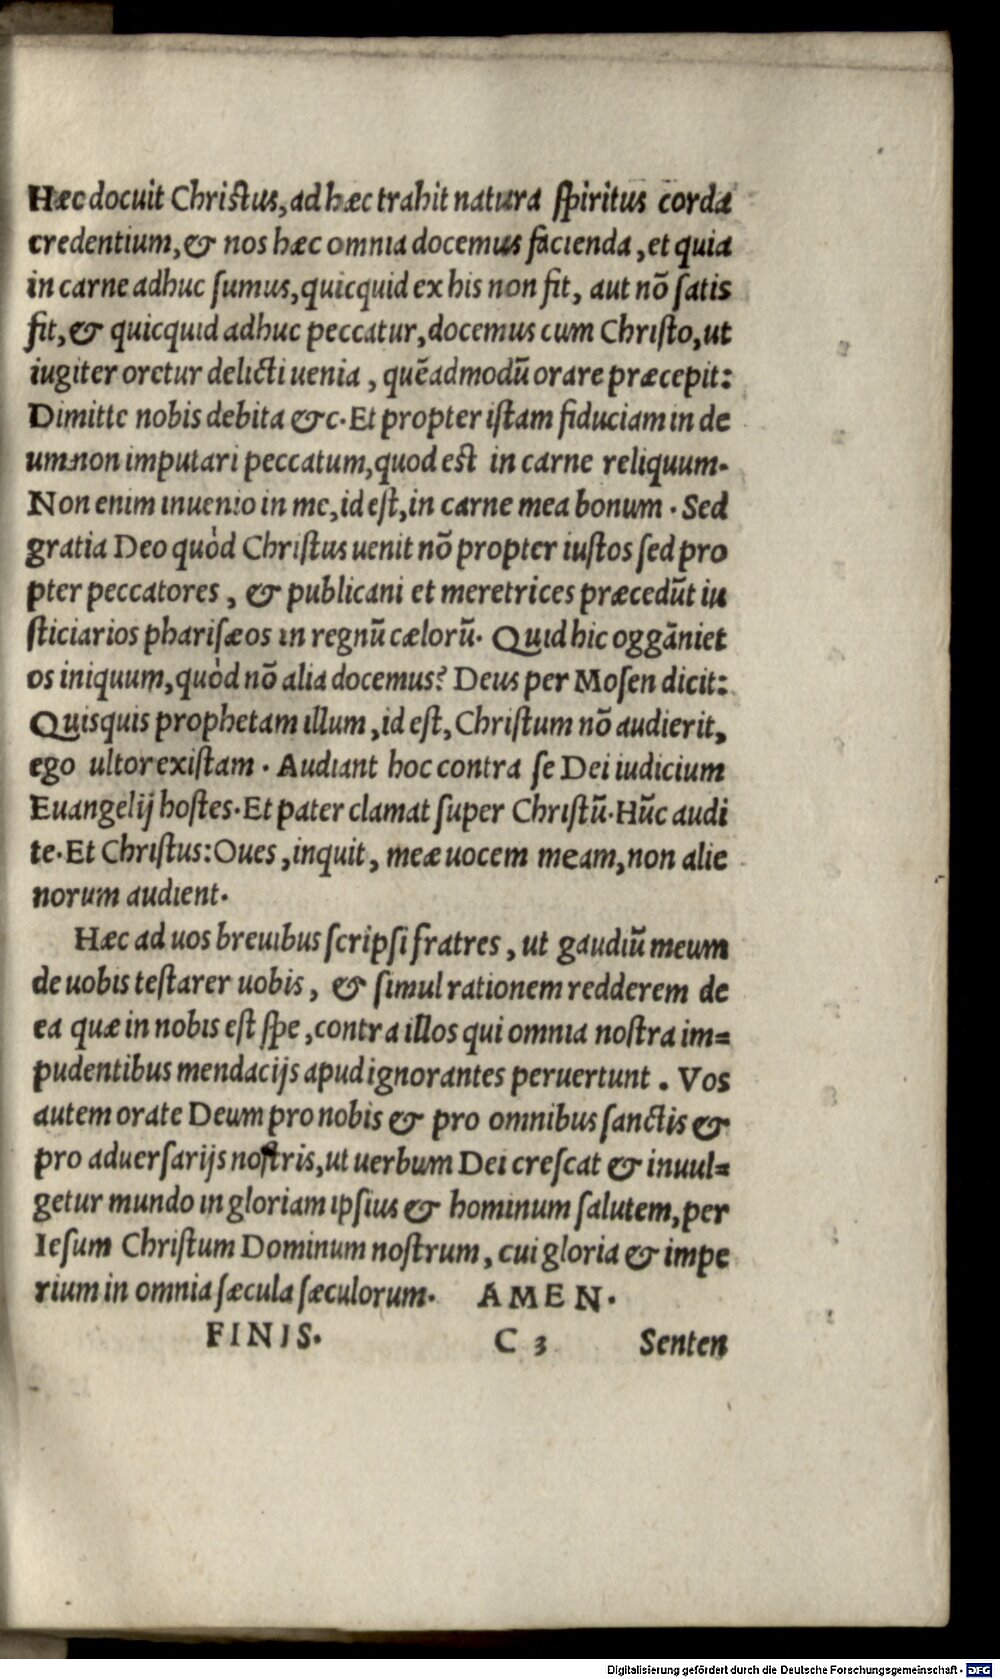 Hæc docuit Christus, ad hæc trahit natura spiritus corda
credentium, & nos hæc omnia docemus facienda, et quia
in carne adhuc sumus, quicquid ex his non fit, aut nõ satis
fit, & quicquid adhuc peccatur, docemus cum Christo, ut
iugiter oretur delicti uenia, quẽadmodũ orare præcepit:
Dimitte nobis debita &c. Et propter istam fiduciam in de
um non imputari peccatum, quod est in carne reliquum.
Non enim inuenio in me, id est, in carne mea bonum. Sed
gratia Deo quòd Christus uenit nõ propter iustos sed pro
pter peccatores, & publicani et meretrices præcedũt iu
sticiarios pharisæos in regnũ cælorũ. Quid hic oggãniet
os iniquum, quòd nõ alia docemus? Deus per Mosen dicit:
Quisquis prophetam illum, id est, Christum nõ audierit,
ego ultor existam. Audiant hoc contra se Dei iudicium
Euangelij hostes. Et pater clamat super Christũ. Hũc audi
te. Et Christus: Oues, inquit, meæ uocem meam, non alie
norum audient.
Hæc ad uos breuibus scripsi fratres, ut gaudiũ meum
de uobis testarer uobis, & simul rationem redderem de
ea quæ in nobis est spe, contra illos qui omnia nostra im=
pudentibus mendacijs apud ignorantes peruertunt. Vos
autem orate Deum pro nobis & pro omnibus sanctis &
pro aduersarijs nostris, ut uerbum Dei crescat & inuul=
getur mundo in gloriam ipsius & hominum salutem, per
Iesum Christum Dominum nostrum, cui gloria & impe
rium in omnia sæcula sæculorum. AMEN.
FINIS. C 3 Senten
Digitalisierung gefördert durch die Deutsche Forschungsgemeinschaft - DFG